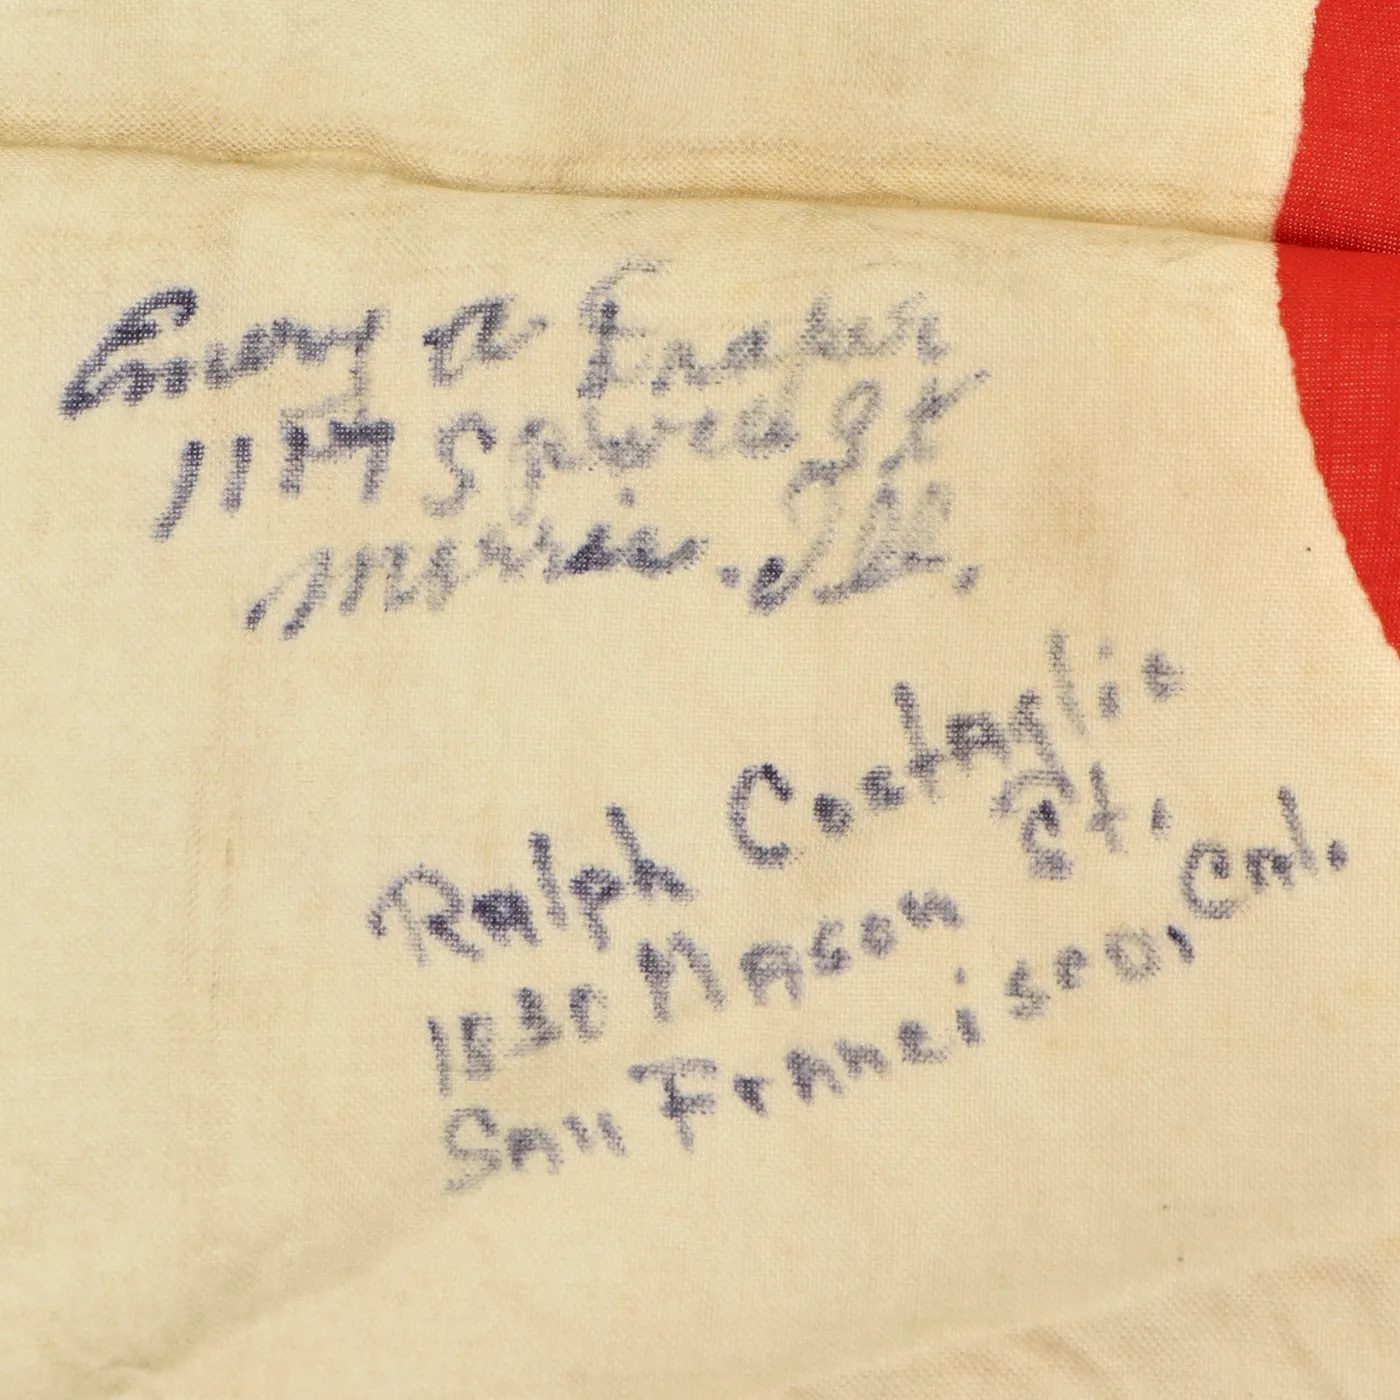 Emory A. Fraher
1117 Spruce St
Morris. Ill.
Ralph Costaglio
1030 Mason St.
San Francisco, Cal.